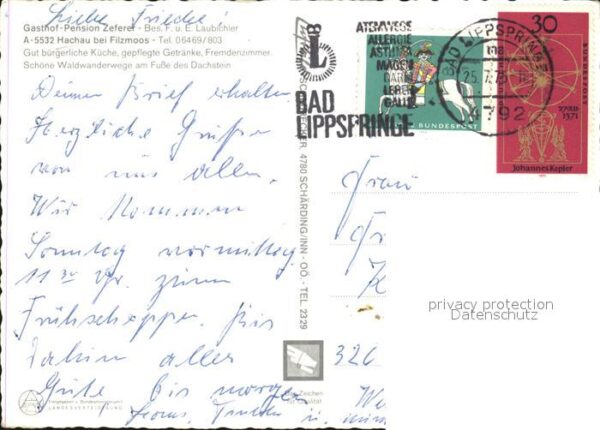 Liebe Friedel!
Gasthof-Pension Zeferer - Bes. F. u. E. Laubichler
A-5532 Hachau bei Filzmoos - Tel. 06469/803
Gut bürgerliche Küche, gepflegte Getränke, Fremdenzimmer.
Schöne Waldwanderwege am Fuße des Dachstein
Deinen Brief erhalten
Herzliche Grüße
von uns allen.
Wir kommen
Sonntag vormittag
11 30 Uhr. zum
Frühschoppen. Bis
dahin alles
Gute Bis morgen
u.
LANDESVERTEIDIGUNG
4780 SCHÄRDING/INN - OÖ. - TEL. 2329
L
ATEMWEGE
ALLERGIE
ASTHMA
MAGEN
DARM
LEBER
GALLE
BAD
LIPPSPRINGE
BAD LIPPSPRINGE
25.7.78
4792
BUNDESPOST
30
BUNDESPOST
27.XII.
1571
Johannes Kepler
Frau
K
326
privacy protection
Datenschutz